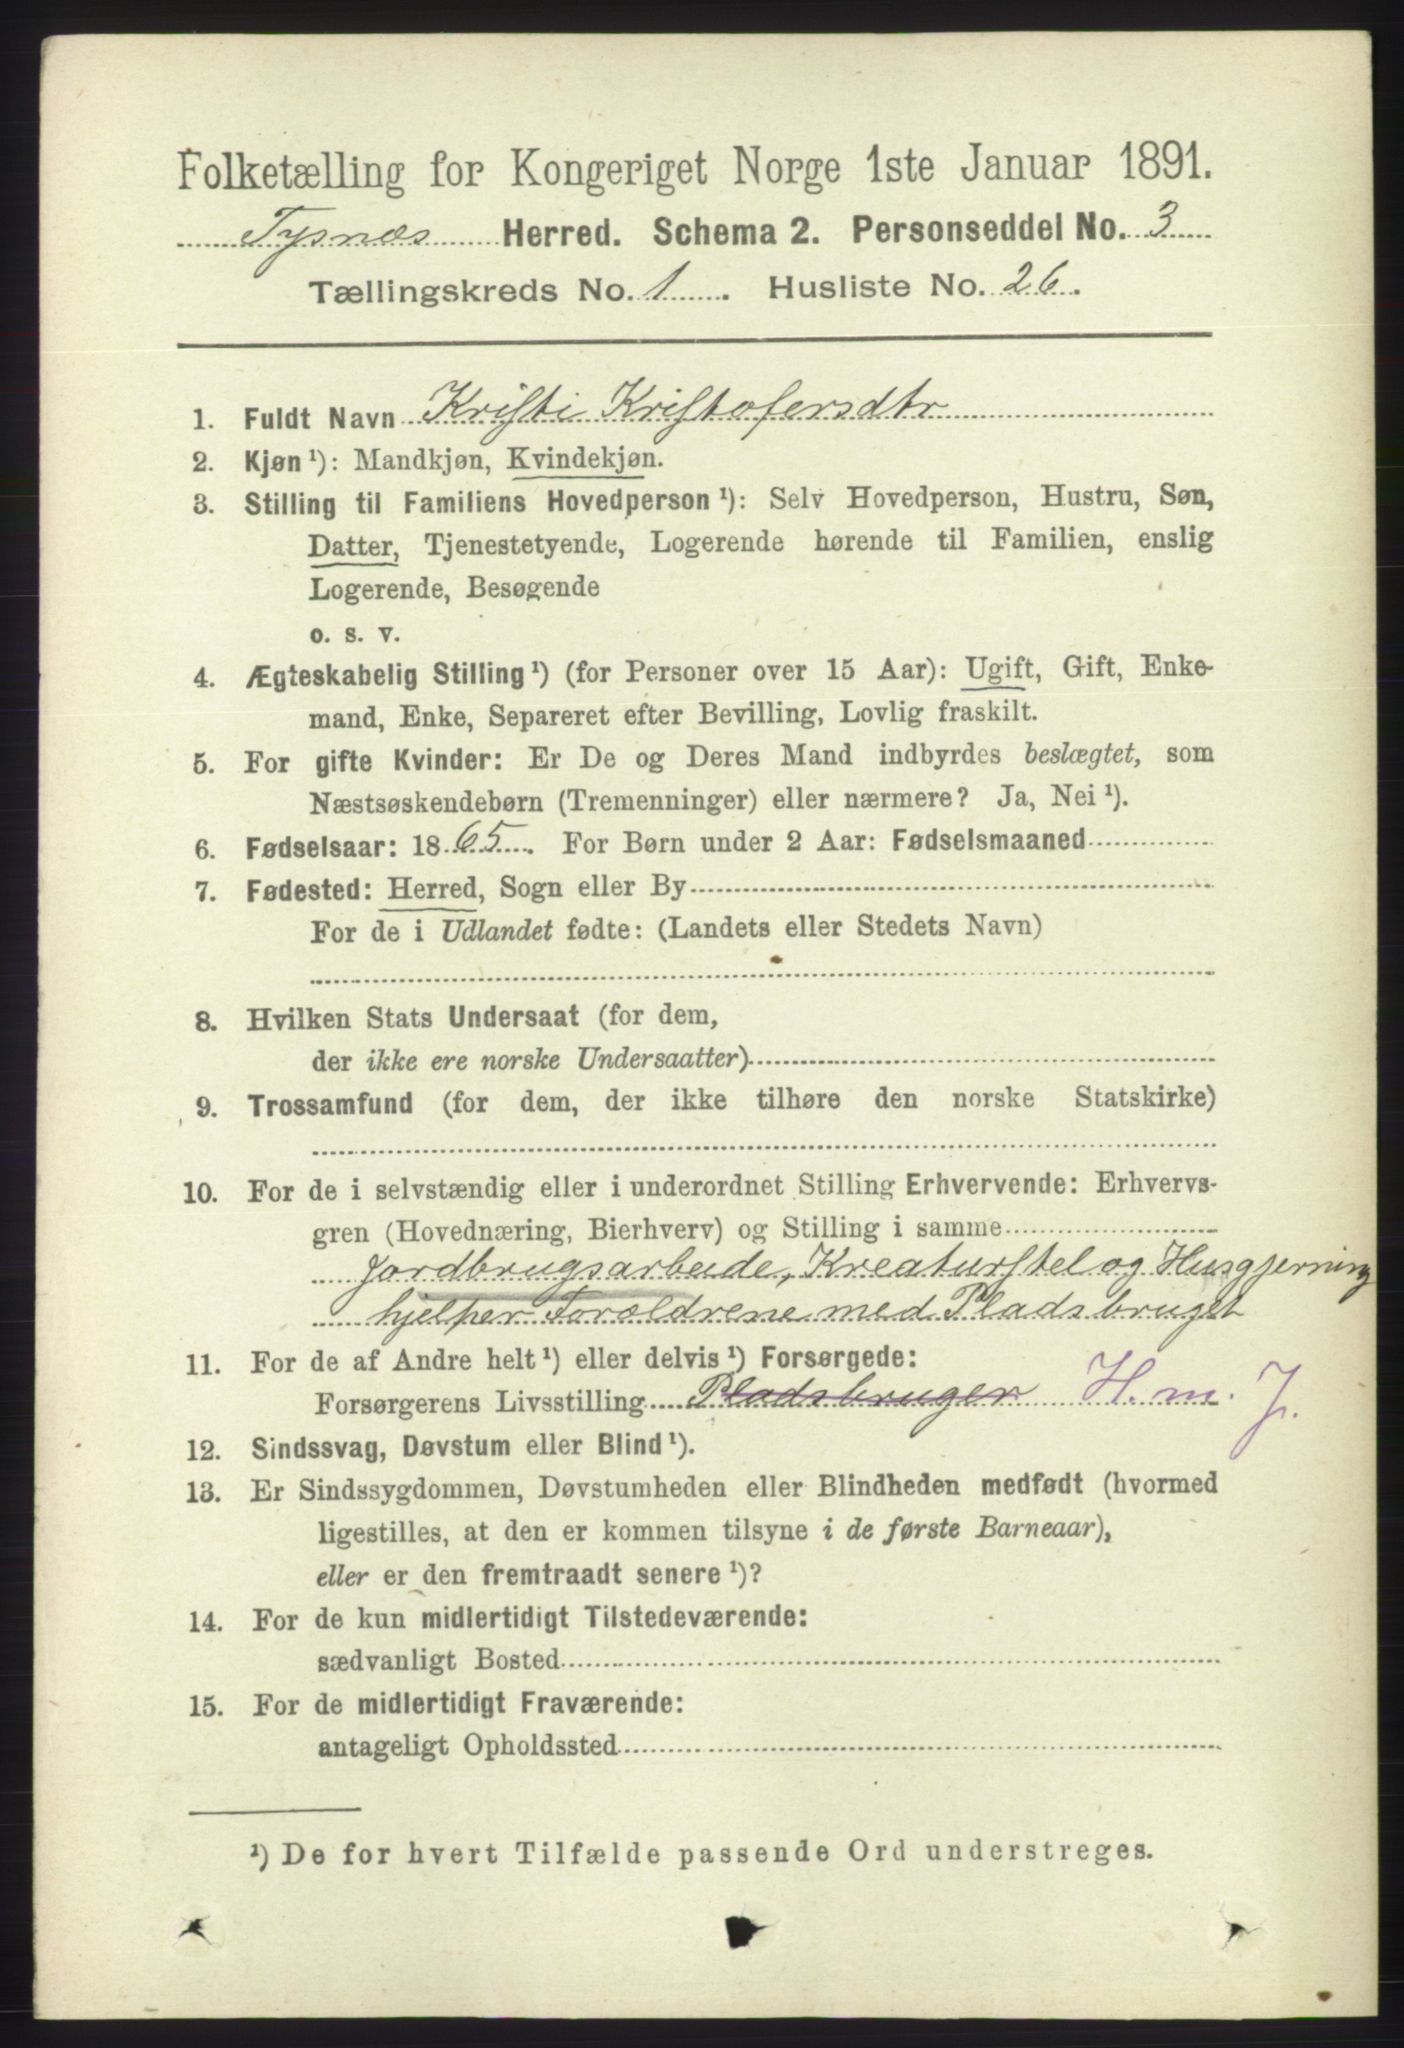 Folketælling for Kongeriget Norge 1ste Januar 1891.
Tysnæs Herred. Schema 2. Personseddel No. 3
Tællingskreds No. 1. Husliste No. 26.
1. Fuldt Navn Kristi Kristofersdtr
2. Kjøn ¹): Mandkjøn, Kvindekjøn.
3. Stilling til Familiens Hovedperson ¹): Selv Hovedperson, Hustru, Søn,
Datter, Tjenestetyende, Logerende hørende til Familien, enslig
Logerende, Besøgende
o. s. v.
4. Ægteskabelig Stilling ¹) (for Personer over 15 Aar): Ugift, Gift, Enke-
mand, Enke, Separeret efter Bevilling, Lovlig fraskilt.
5. For gifte Kvinder: Er De og Deres Mand indbyrdes beslægtet, som
Næstsøskendebørn (Tremenninger) eller nærmere? Ja, Nei ¹).
6. Fødselsaar: 1865. For Børn under 2 Aar: Fødselsmaaned
7. Fødested: Herred, Sogn eller By
For de i Udlandet fødte: (Landets eller Stedets Navn)
8. Hvilken Stats Undersaat (for dem,
der ikke ere norske Undersaatter)
9. Trossamfund (for dem, der ikke tilhøre den norske Statskirke)
10. For de i selvstændig eller i underordnet Stilling Erhvervende: Erhvervs-
gren (Hovednæring, Bierhverv) og Stilling i samme
Jordbrugsarbeide, Kreaturstel og Husgjerning
hjelper Forældrene med Pladsbruget
11. For de af Andre helt ¹) eller delvis ¹) Forsørgede:
Forsørgerens Livsstilling Pladsbruger H. m. J.
12. Sindssvag, Døvstum eller Blind ¹).
13. Er Sindssygdommen, Døvstumheden eller Blindheden medfødt (hvormed
ligestilles, at den er kommen tilsyne i de første Barneaar),
eller er den fremtraadt senere ¹)?
14. For de kun midlertidigt Tilstedeværende:
sædvanligt Bosted
15. For de midlertidigt Fraværende:
antageligt Opholdssted
¹) De for hvert Tilfælde passende Ord understreges.